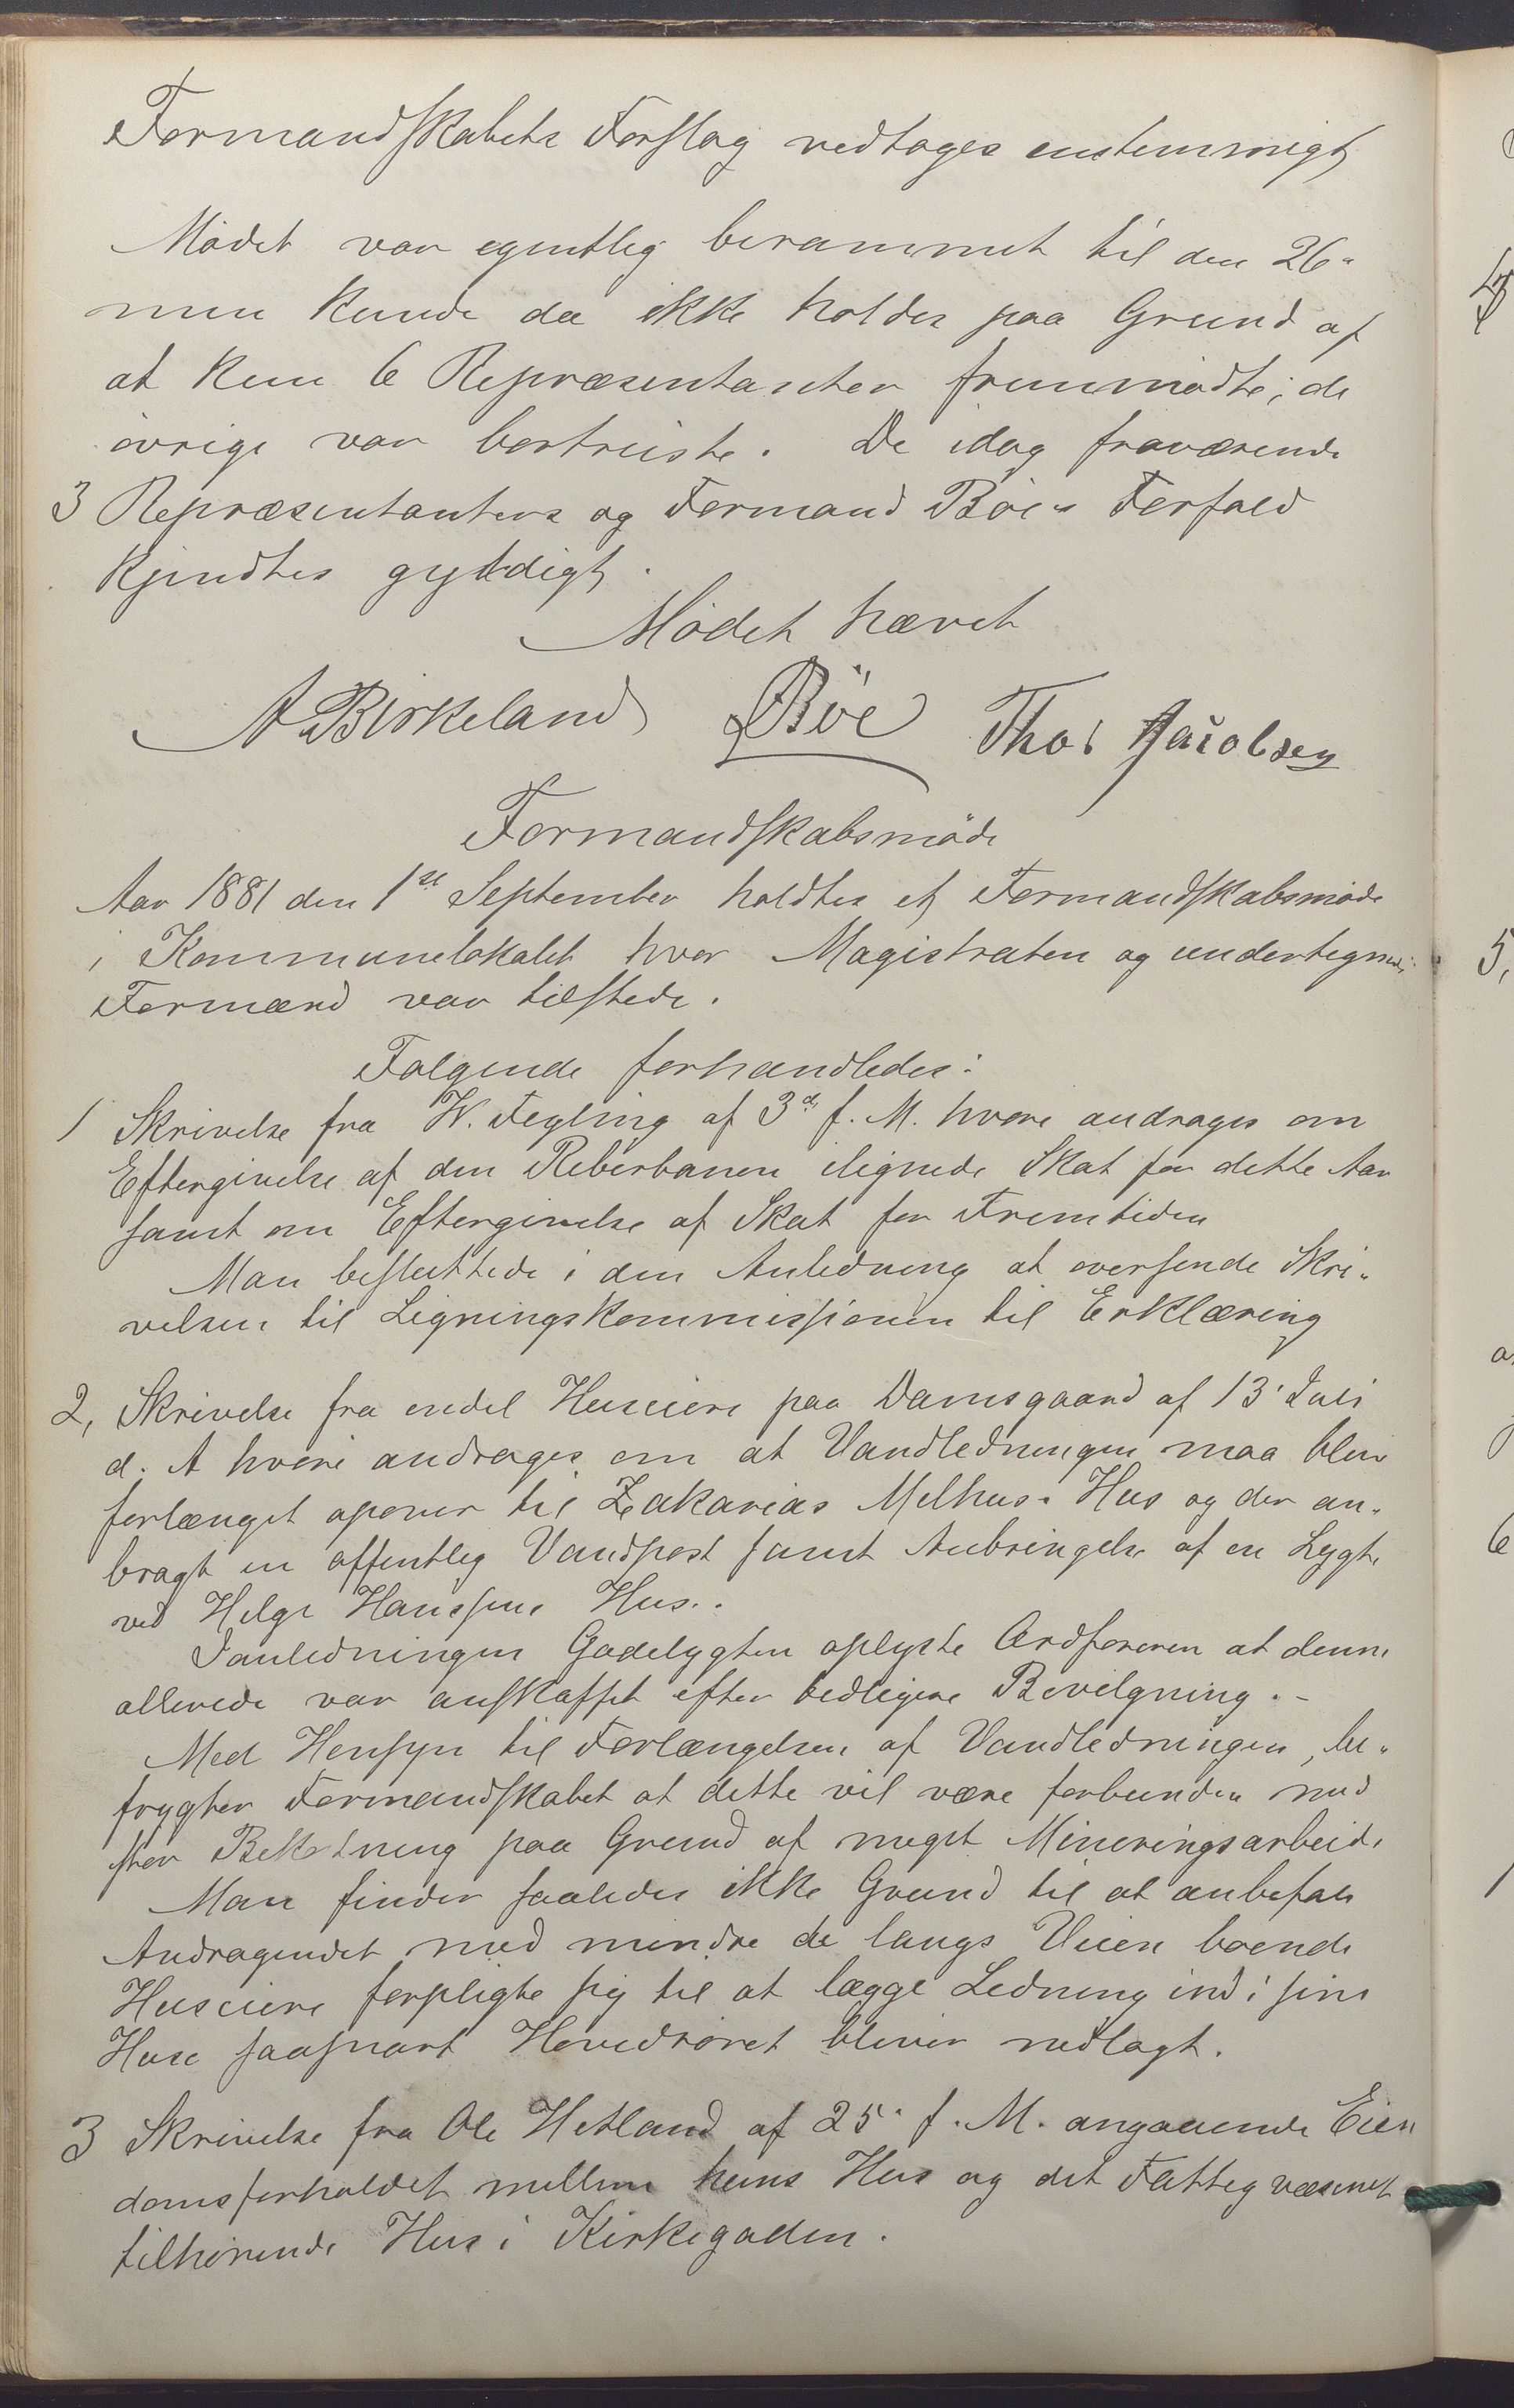 Formandskabets Forslag vedtoges enstemmigt
Mødet var egentlig berammet til den 26-
men kunde da ikke holdes paa Grund af
at kun 6 Repræsentanter fremmødte; de
øvrige var bortreiste. De idag fraværende
3 Repræsentanters og Formand Böes Forfald
kjendtes gyldigt.
Mødet hævet
A Birkeland Böe Thos Jacobsen
Formandskabsmøde
Aar 1881 den 1ste September holdtes et Formandskabsmøde
i Kommunelokalet hvor Magistraten og undertegnede
Formænd var tilstede.
Følgende forhandledes:
1 Skrivelse fra W. Fegling af 3d f. M. hvori andrages om
Eftergivelse af den Reberbanen ilignede Skat for dette Aar
samt om Eftergivelse af Skat for Fremtiden
Man besluttede i den Anledning at oversende Skri-
velsen til Ligningskommissionen til Erklæring
2, Skrivelse fra endel Huseiere paa Damsgaard af 13' Juli
d. A hvori andrages om at Vandledningen maa blive
forlænget opover til Zakarias Melhus's Hus og der an-
bragt en offentlig Vandpost samt Anbringelse af en Lygte
ved Helge Hansens Hus.
Ianledningen Gadelygten oplyste Ordføreren at denne
allerede var anskaffet efter tidligere Bevilgning. -
Med Hensyn til Forlængelsen af Vandledningen, be-
frygter Formandskabet at dette vil være forbunden med
stor Bekostning paa Grund af meget Mineringsarbeide
Man finder saaledes ikke Grund til at anbefale
Andragendet med mindre de langs Veien boende
Huseiere forpligte sig til at lægge Ledning ind i sine
Huse saasnart Hovedrøret bliver nedlagt.
3 Skrivelse fra Ole Hetland af 25' f. M. angaaende Eien
domsforholdet mellem hans Hus og det Fattigvæsenet
tilhørende Hus i Kirkegaden.